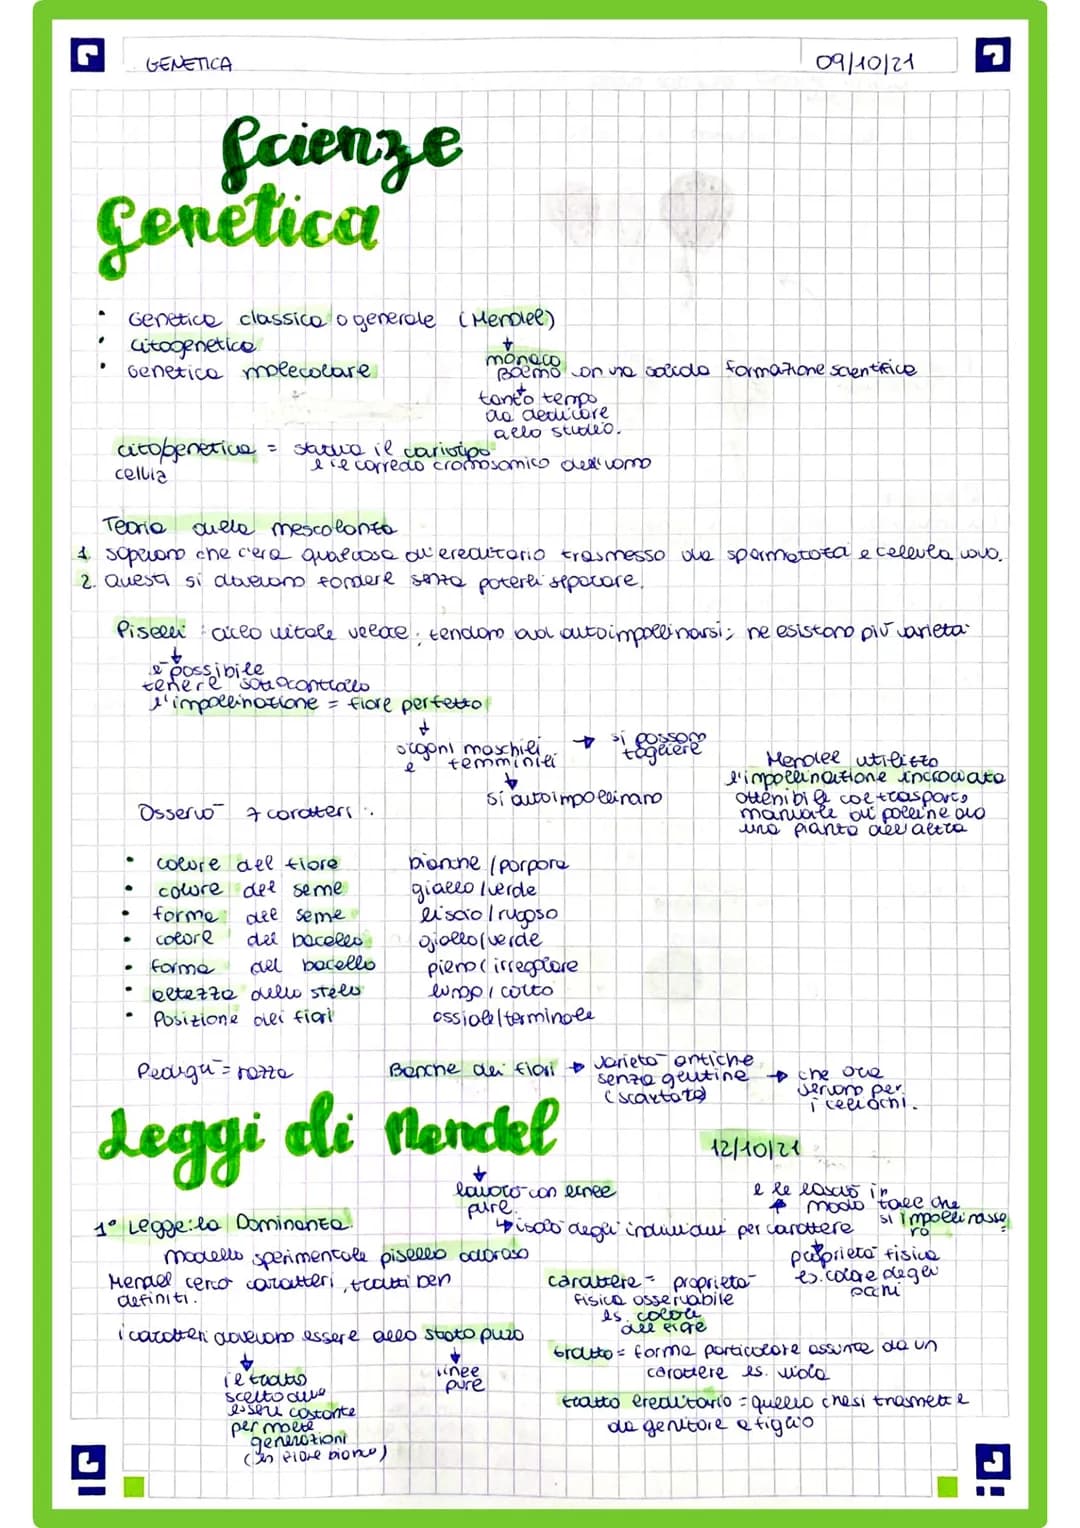 GENETICA
09/10/21
Scienze
Genetica
• Genetica classica o generale (Mendel)
• citogenetica
• Genetica molecolare
monaco
Boemo con una solida formazione scientifica
tanto tempo
da dedicare
allo studio.
citogenetica = studia il cariotipo
cellula
e il corredo cromosomico dell'uomo
Teoria della mescolanza
1. sapevano che c'era qualcosa di ereditario trasmesso da spermatozoi e cellula uovo.
2. Questi si dovevano fondere senza poterli separare.
Piselli: ciclo vitale veloce; tendono ad autoimpollinarsi; ne esistono più varietà
è possibile
tenere sotto controllo
l'impollinazione = fiore perfetto
organi maschili
e femminili
si possono
togliere
si autoimpollinano
Mendel utilizzò
l'impollinazione incrociata
ottenibile col trasporto
manuale di polline da
una pianta all'altra
Osservò 7 caratteri:
• colore del fiore bianche/porpora
• colore del seme giallo/verde
• forma del seme liscio/rugoso
• colore del bacello giallo/verde
• forma del bacello pieno/irregolare
• altezza dello stelo lungo/corto
• Posizione dei fiori assiale/terminale
Pedigù = razza
Banche dei fiori → varietà antiche
senza glutine
(scartate)
che ora
servono per
i celiachi.
Leggi di Mendel
12/10/21
lavorò con linee
pure.
isolò degli individui per carattere
e le lasciò in
modo tale che
si impollinasse
ro
1° Legge: la Dominanza
modello sperimentale pisello odoroso
Mendel cercò caratteri, tratti ben
definiti.
carattere = proprietà
fisica osservabile
es. colore
del fiore
proprietà fisica
es. colore degli
i caratteri dovevano essere allo stato puro
il tratto
scelto deve
essere costante
per molte
generazioni
(es fiore bianco)
linee
pure
tratto = forma particolare assunta da un
carattere es. viola
tratto ereditario = quello che si trasmette
da genitore a figlio